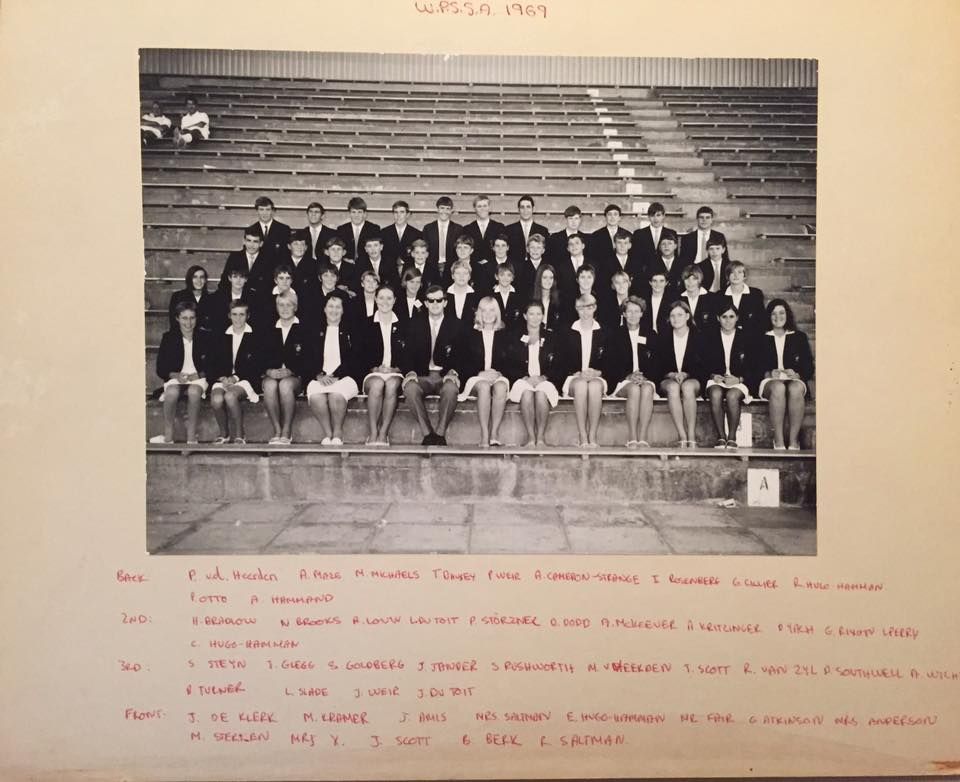 W.P.S.S.A. 1969
A
BACK P. v.d. Heerden A. MAZE M. MICHAELS P. WEIR A. CAMERON-STRANGE I ROSENBERG G. CILLIER R. HUGO-HAMMAN
P. OTTO A. HAMMAND
2ND: H. BRADLOW N BROOKS A. LOUW L. DU TOIT P. STÖRZNER D. DODD A. McKEEVER A. KRITZINGER L. PERRY
C. HUGO-HAMMAN
3RD: S. STEYN S. GOLDBERG J. JANDER S RUSHWORTH T. SCOTT R. VAN ZYL D. SOUTHWELL
D TURNER L. SLADE J. WEIR J. DU TOIT
FRONT: J. DE KLERK M. KRAMER J. AMIS MRS. SALTMAN E. HUGO-HAMMAN MR FAIR G ATKINSON MRS ANDERSON
M. MRS X. J. SCOTT B. BERK R. SALTMAN.